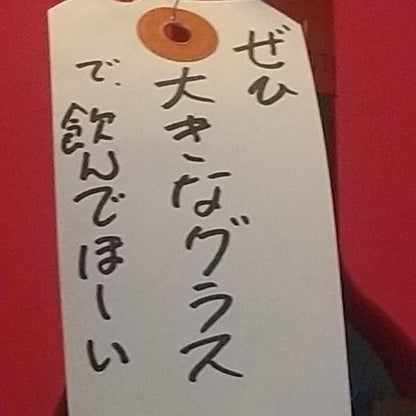 ぜひ
大きなグラス
で、飲んでほーい